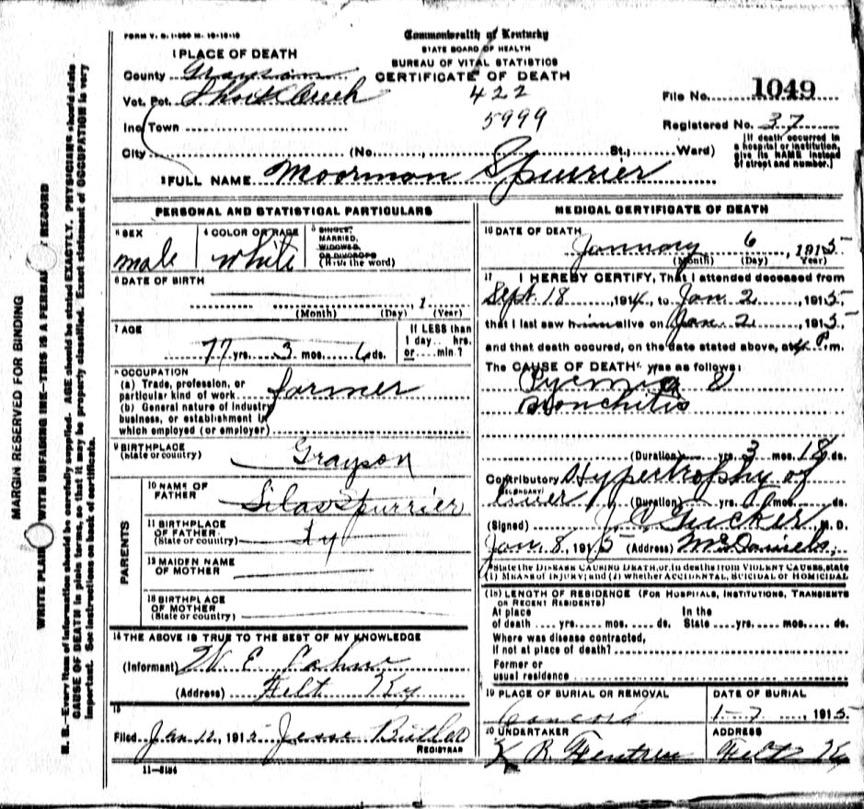 FORM V. S. 1-
Commonwealth of Kentucky
STATE BOARD OF HEALTH
BUREAU OF VITAL STATISTICS
CERTIFICATE OF DEATH
1 PLACE OF DEATH
County Grayson
Vot. Pct. Short Creek
422
5999
File No. 1049
Inc Town
Registered No. 37
City (No. , St.; Ward)
[If death occurred in a hospital or institution, give its NAME instead of street and number.]
2 FULL NAME Moorman Spurrier
PERSONAL AND STATISTICAL PARTICULARS
3 SEX
male
4 COLOR OR RACE
white
5 SINGLE, MARRIED, WIDOWED OR DIVORCED
(Write the word)
6 DATE OF BIRTH
, 1
(Month) (Day) (Year)
7 AGE
77 yrs. 3 mos. 6 ds.
If LESS than 1 day hrs. or min.?
8 OCCUPATION
(a) Trade, profession, or particular kind of work farmer
(b) General nature of industry business, or establishment in which employed (or employer)
9 BIRTHPLACE
(State or country) Grayson
PARENTS
10 NAME OF FATHER Silas Spurrier
11 BIRTHPLACE OF FATHER
(State or country) Ky
12 MAIDEN NAME OF MOTHER
13 BIRTHPLACE OF MOTHER
(State or country)
14 THE ABOVE IS TRUE TO THE BEST OF MY KNOWLEDGE
(Informant) W E
(Address) Felt Ky
15
Filed Jan 12, 1915 Jesse Butler
REGISTRAR
11-5184
MEDICAL CERTIFICATE OF DEATH
16 DATE OF DEATH
January 6, 1915
(Month) (Day) (Year)
17 I HEREBY CERTIFY, That I attended deceased from
Sept. 18, 1914, to Jan. 2, 1915
that I last saw him alive on Jan. 2, 1915,
and that death occured, on the date stated above, at 4 P.m.
The CAUSE OF DEATH was as follows:
Pycmia &
Bronchitis
(Duration) yrs. 3 mos. 18 ds.
Contributory Hypertrophy of
(SECONDARY)
liver (Duration) yrs. mos. ds.
(Signed) Tucker M. D.
Jan. 8, 1915 (Address) McDaniels,
State the DISEASE CAUSING DEATH, or, in deaths from VIOLENT CAUSES, state
(1) MEANS OF INJURY; and (2) whether ACCIDENTAL, SUICIDAL or HOMICIDAL
(18) LENGTH OF RESIDENCE (FOR HOSPITALS, INSTITUTIONS, TRANSIENTS OR RECENT RESIDENTS)
At place of death yrs. mos. ds. In the State yrs. mos. ds.
Where was disease contracted,
If not at place of death?
Former or
usual residence
19 PLACE OF BURIAL OR REMOVAL
Concord
DATE OF BURIAL
1-7, 1915
20 UNDERTAKER
R. Fentress
ADDRESS
Felt Ky
MARGIN RESERVED FOR BINDING
WRITE PLAINLY WITH UNFADING INK—THIS IS A PERMANENT RECORD
N. B.—Every item of information should be carefully supplied. AGE should be stated EXACTLY. PHYSICIANS should state
CAUSE OF DEATH in plain terms, so that it may be properly classified. Exact statement of OCCUPATION is very
important. See instructions on back of certificate.